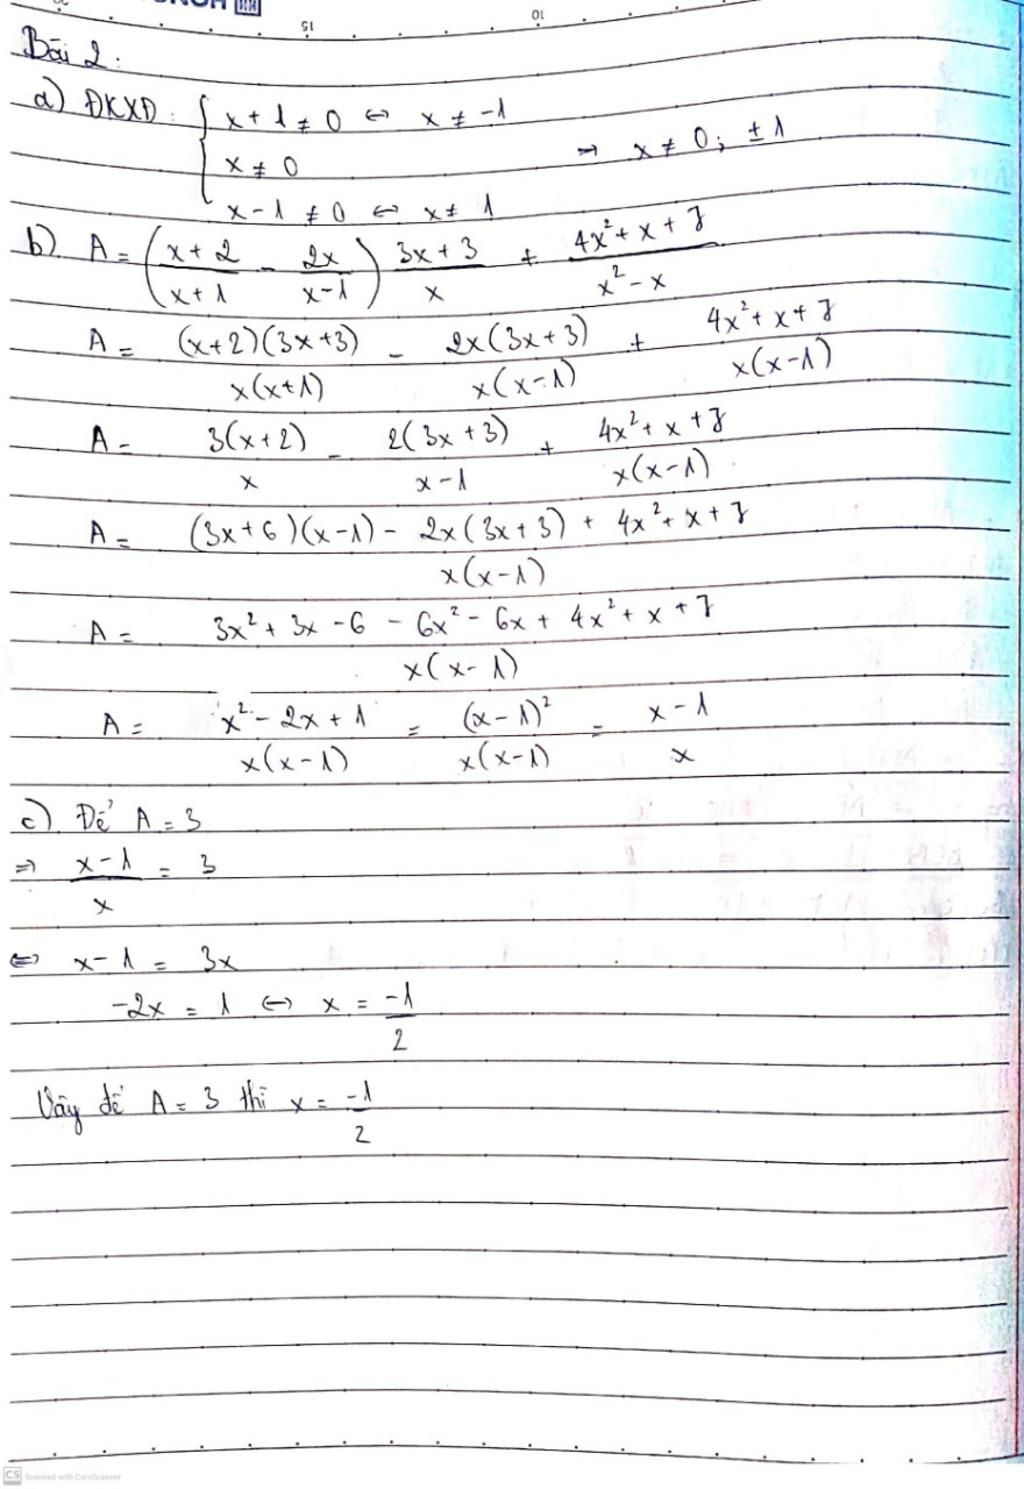 15 10
Bài 2:
a) ĐKXĐ: { x + 1 ≠ 0 ⇔ x ≠ -1
x ≠ 0 ⇒ x ≠ 0; ± 1
x - 1 ≠ 0 ⇔ x ≠ 1
b) A = ((x + 2)/(x + 1) - 2x/(x - 1)) (3x + 3)/x + (4x² + x + 7)/(x² - x)
A = (x+2)(3x+3)/x(x+1) - 2x(3x+3)/x(x-1) + (4x² + x + 7)/x(x-1)
A = 3(x+2)/x - 2(3x+3)/(x-1) + (4x² + x + 7)/x(x-1)
A = ((3x+6)(x-1) - 2x(3x+3) + 4x² + x + 7)/x(x-1)
A = (3x² + 3x - 6 - 6x² - 6x + 4x² + x + 7)/x(x-1)
A = (x² - 2x + 1)/x(x-1) = (x-1)²/x(x-1) = (x-1)/x
c) Để A = 3
⇒ (x-1)/x = 3
⇔ x - 1 = 3x
-2x = 1 ⇔ x = -1/2
Vậy để A = 3 thì x = -1/2
CS Scanned with CamScanner